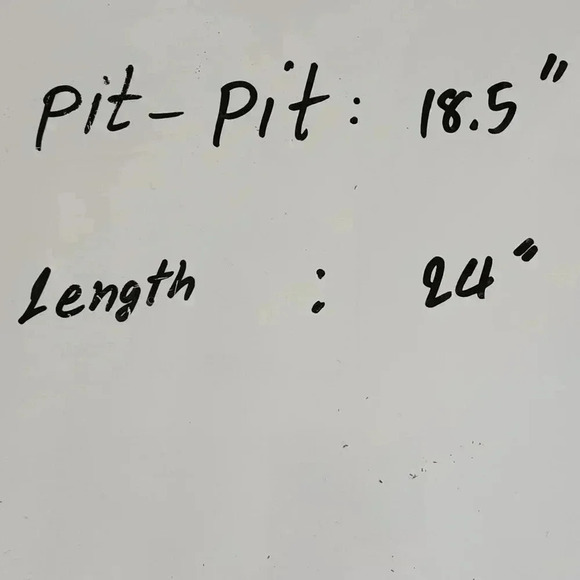 Pit-Pit: 18.5"
Length : 24"